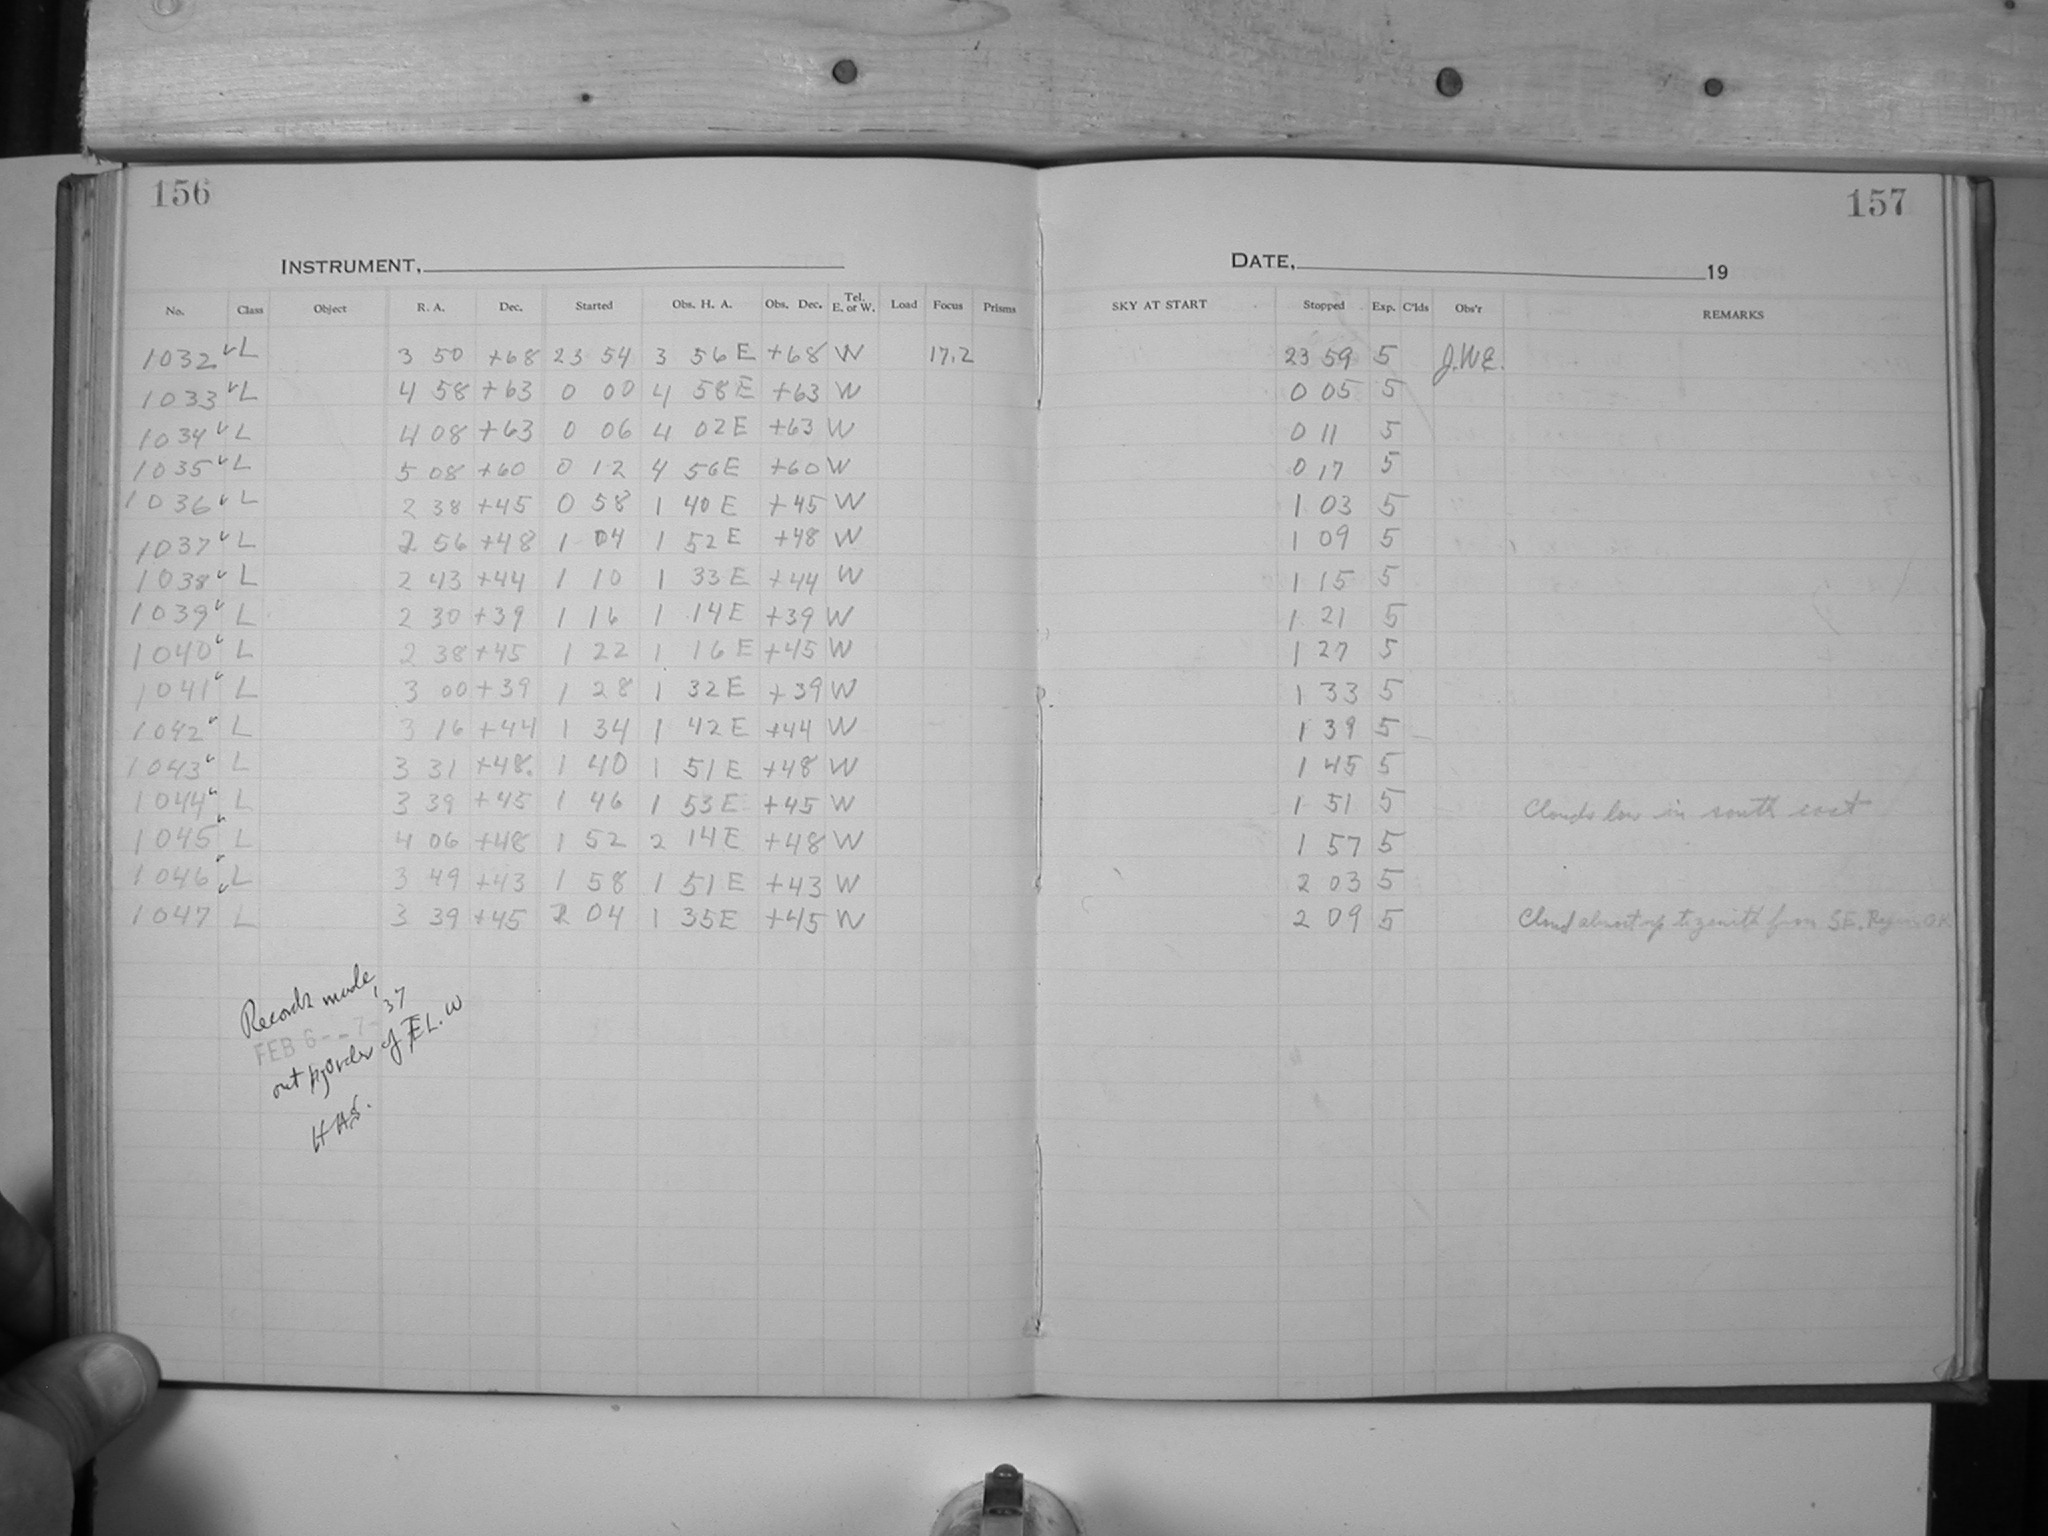 156
157
INSTRUMENT,
DATE, 19
No. Class Object R. A. Dec. Started Obs. H. A. Obs. Dec. Tel. E. or W. Load Focus Prisms SKY AT START Stopped Exp. C'lds Obs'r REMARKS
1032 ✓ L 3 50 +68 23 54 3 56 E +68 W 17.2 23 59 5 J.W.E.
1033 ✓ L 4 58 +63 0 00 4 58 E +63 W 0 05 5
1034 ✓ L 4 08 +63 0 06 4 02 E +63 W 0 11 5
1035 ✓ L 5 08 +60 0 12 4 56 E +60 W 0 17 5
1036 ✓ L 2 38 +45 0 58 1 40 E +45 W 1 03 5
1037 ✓ L 2 56 +48 1 04 1 52 E +48 W 1 09 5
1038 ✓ L 2 43 +44 1 10 1 33 E +44 W 1 15 5
1039 ✓ L 2 30 +39 1 16 1 14 E +39 W 1 21 5
1040 ✓ L 2 38 +45 1 22 1 16 E +45 W 1 27 5
1041 ✓ L 3 00 +39 1 28 1 32 E +39 W 1 33 5
1042 ✓ L 3 16 +44 1 34 1 42 E +44 W 1 39 5
1043 ✓ L 3 31 +48. 1 40 1 51 E +48 W 1 45 5
1044 ✓ L 3 39 +45 1 46 1 53 E +45 W 1 51 5 Clouds low in south east
1045 ✓ L 4 06 +48 1 52 2 14 E +48 W 1 57 5
1046 ✓ L 3 49 +43 1 58 1 51 E +43 W 2 03 5
1047 ✓ L 3 39 +45 2 04 1 35 E +45 W 2 09 5 Cloud almost up to zenith from SE. Region OK
Records made,
FEB 6 - - 7 - 37
out order of E L. W
H A S.